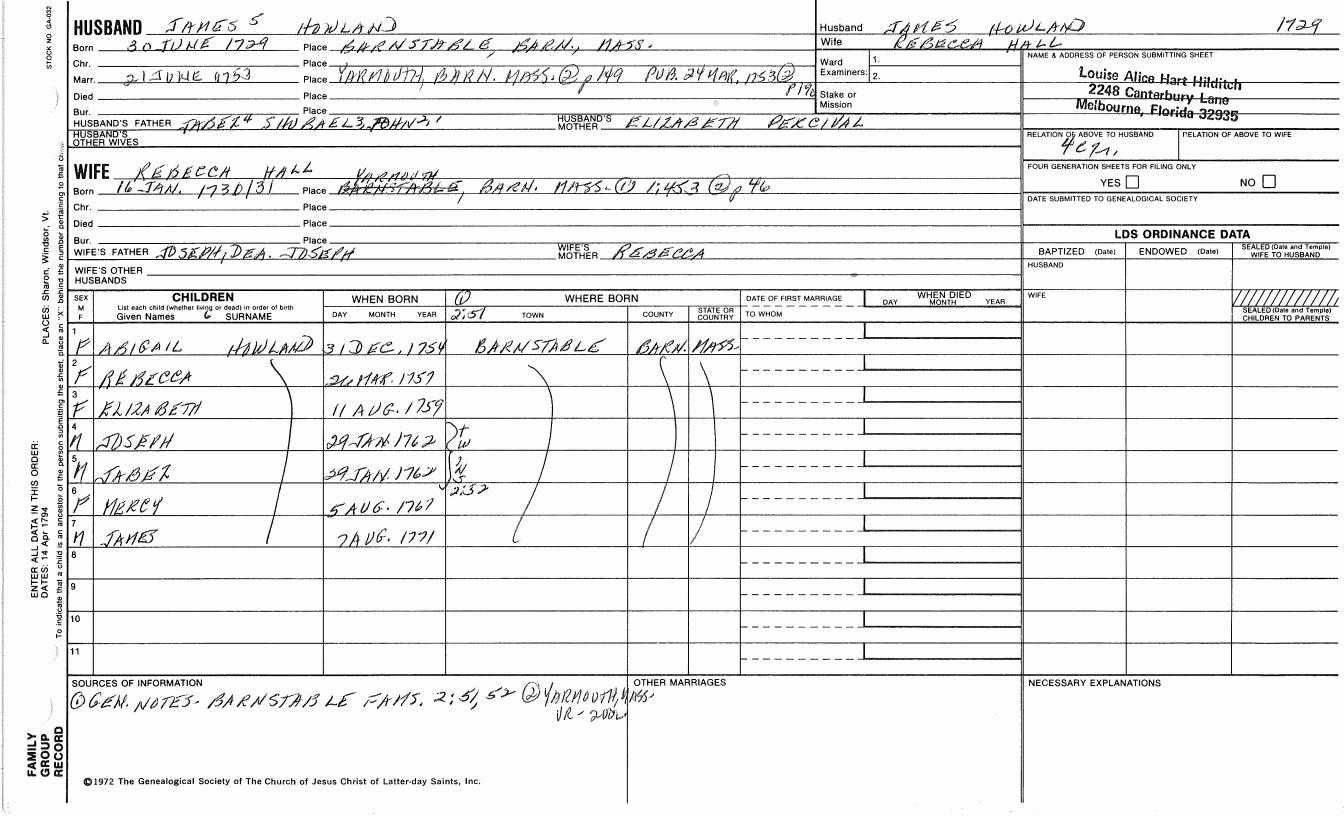 STOCK NO. GA-032
HUSBAND JAMES 5 HOWLAND
Born 30 JUNE 1729 Place BARNSTABLE, BARN., MASS.
Chr. Place
Marr. 21 JUNE 1753 Place YARMOUTH, BARN. MASS. ② p149 PUB. 24 MAR. 1753 ②
Died Place
Bur. Place
HUSBAND'S FATHER JABEZ 4 SHUBAEL 3, JOHN 2,1 HUSBAND'S MOTHER ELIZABETH PERCIVAL
HUSBAND'S OTHER WIVES
WIFE REBECCA HALL
YARMOUTH
Born 16 JAN. 1730/31 Place BARNSTABLE, BARN. MASS- ① 1:453 ② p46
Chr. Place
Died Place
Bur. Place
WIFE'S FATHER JOSEPH, DEA. JOSEPH WIFE'S MOTHER REBECCA
WIFE'S OTHER HUSBANDS
Husband JAMES HOWLAND 1729
Wife REBECCA HALL
Ward Examiners: 1.
2.
Stake or Mission
NAME & ADDRESS OF PERSON SUBMITTING SHEET
Louise Alice Hart Hilditch
2248 Canterbury Lane
Melbourne, Florida 32935
RELATION OF ABOVE TO HUSBAND RELATION OF ABOVE TO WIFE
FOUR GENERATION SHEETS FOR FILING ONLY
YES NO
DATE SUBMITTED TO GENEALOGICAL SOCIETY
LDS ORDINANCE DATA
BAPTIZED (Date) ENDOWED (Date) SEALED (Date and Temple) WIFE TO HUSBAND
HUSBAND
WIFE
SEALED (Date and Temple) CHILDREN TO PARENTS
SEX M F
CHILDREN
List each child (whether living or dead) in order of birth
Given Names SURNAME
WHEN BORN
DAY MONTH YEAR
① 2:51
WHERE BORN
TOWN COUNTY STATE OR COUNTRY
DATE OF FIRST MARRIAGE
TO WHOM
WHEN DIED
DAY MONTH YEAR
1 F ABIGAIL HOWLAND 31 DEC. 1754 BARNSTABLE BARN. MASS.
2 F REBECCA 26 MAR. 1757
3 F ELIZABETH 11 AUG. 1759
4 M JOSEPH 29 JAN. 1762 TW
5 M JABEZ 29 JAN. 1762 INS
2:52
6 F MERCY 5 AUG. 1767
7 M JAMES 7 AUG. 1771
8
9
10
11
SOURCES OF INFORMATION
① GEN. NOTES- BARNSTABLE FAMS. 2:51, 52 ② YARMOUTH, MASS.
OTHER MARRIAGES
NECESSARY EXPLANATIONS
©1972 The Genealogical Society of The Church of Jesus Christ of Latter-day Saints, Inc.
PLACES: Sharon, Windsor, Vt.
ENTER ALL DATA IN THIS ORDER:
DATES: 14 Apr 1794
To indicate that a child is an ancestor of the person submitting the sheet, place an "X" behind the number pertaining to that
FAMILY GROUP RECORD